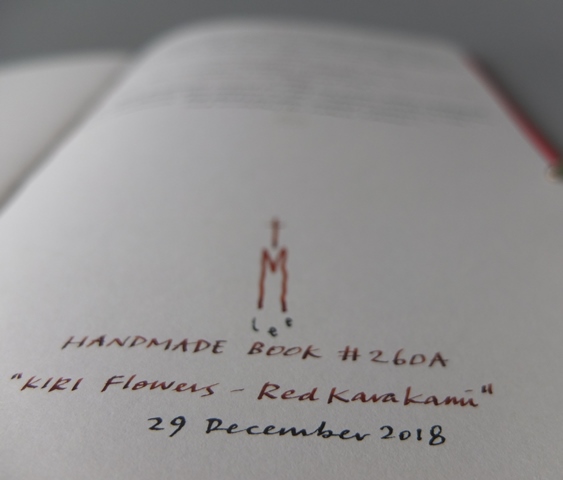 M
lee
HANDMADE BOOK #260A
"KIRI Flowers - Red Karakami"
29 December 2018